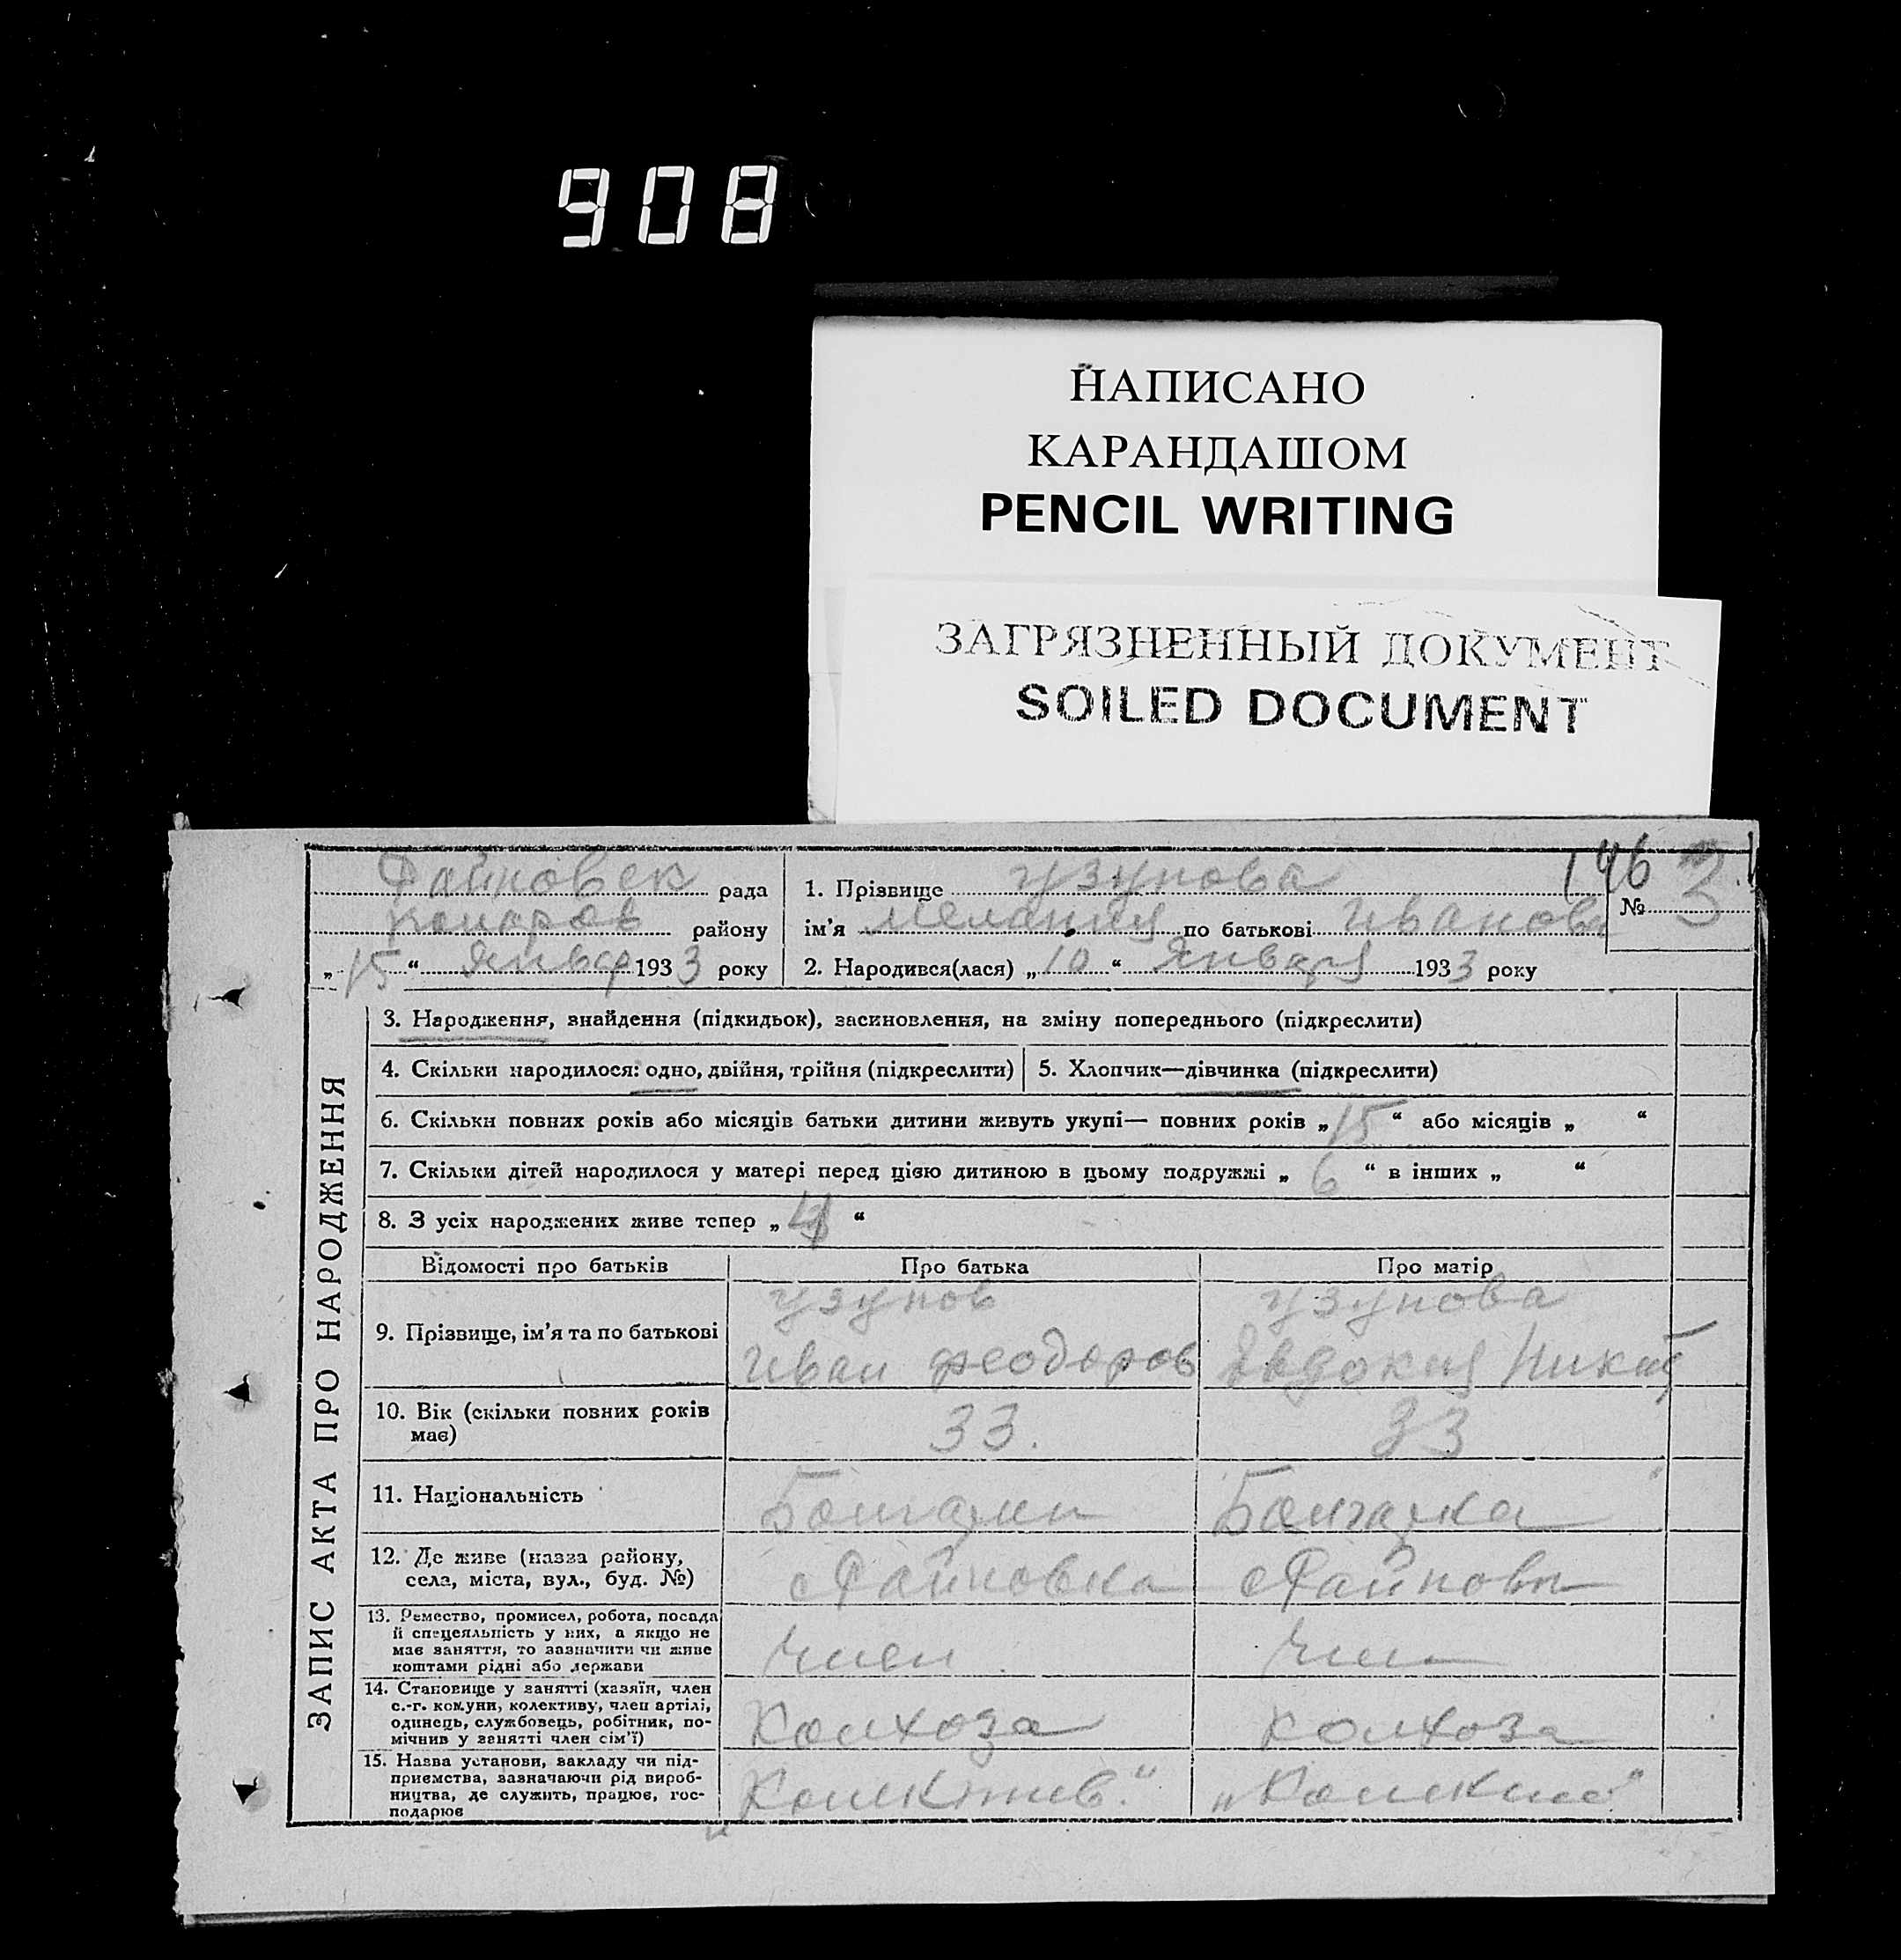 908
НАПИСАНО
КАРАНДАШОМ
PENCIL WRITING
ЗАГРЯЗНЕННЫЙ ДОКУМЕНТ
SOILED DOCUMENT
146
Файновск рада
району
„15“ Январ 1933 року
1. Прізвище Узунова
ім'я Мелания по батькові Иванова
№ 3
2. Народився(лася) „10“ Января 1933 року
ЗАПИС АКТА ПРО НАРОДЖЕННЯ
3. Народження, знайдення (підкидьок), засиновлення, на зміну попереднього (підкреслити)
4. Скільки народилося: одно, двійня, трійня (підкреслити)
5. Хлопчик—дівчинка (підкреслити)
6. Скільки повних років або місяців батьки дитини живуть укупі— повних років „15“ або місяців „ “
7. Скільки дітей народилося у матері перед цією дитиною в цьому подружжі „6“ в інших „ “
8. З усіх народжених живе тепер „ “
Відомості про батьків Про батька Про матір
9. Прізвище, ім'я та по батькові
Узунов
Иван Феодоров
Узунова
Евдокия Никит
10. Вік (скільки повних років
має)
33.
33
11. Національність
Болгарин
Болгарка
12. Де живе (назва району,
села, міста, вул., буд. №)
с Файновка
с Файновк
13. Ремество, промисел, робота, посада
й спецеяльність у них, а якщо не
має заняття, то зазначити чи живе
коштами рідні або держави
Член
Член
14. Становище у занятті (хазяїн, член
с.-г. комуни, колективу, член артілі,
одинець, службовець, робітник, по-
мічнив у занятті член сім'ї)
Колхоза
Колхоза
15. Назва установи, закладу чи під-
приємства, зазначаючи рід вироб-
ництва, де служить, працює, гос-
подарює
„Колектив.“